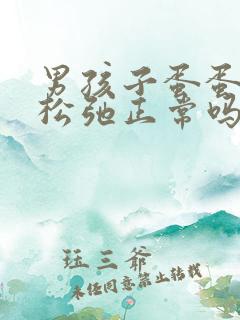 男孩子蛋蛋
松弛正常吗
珏三爷
未经同意禁止转载